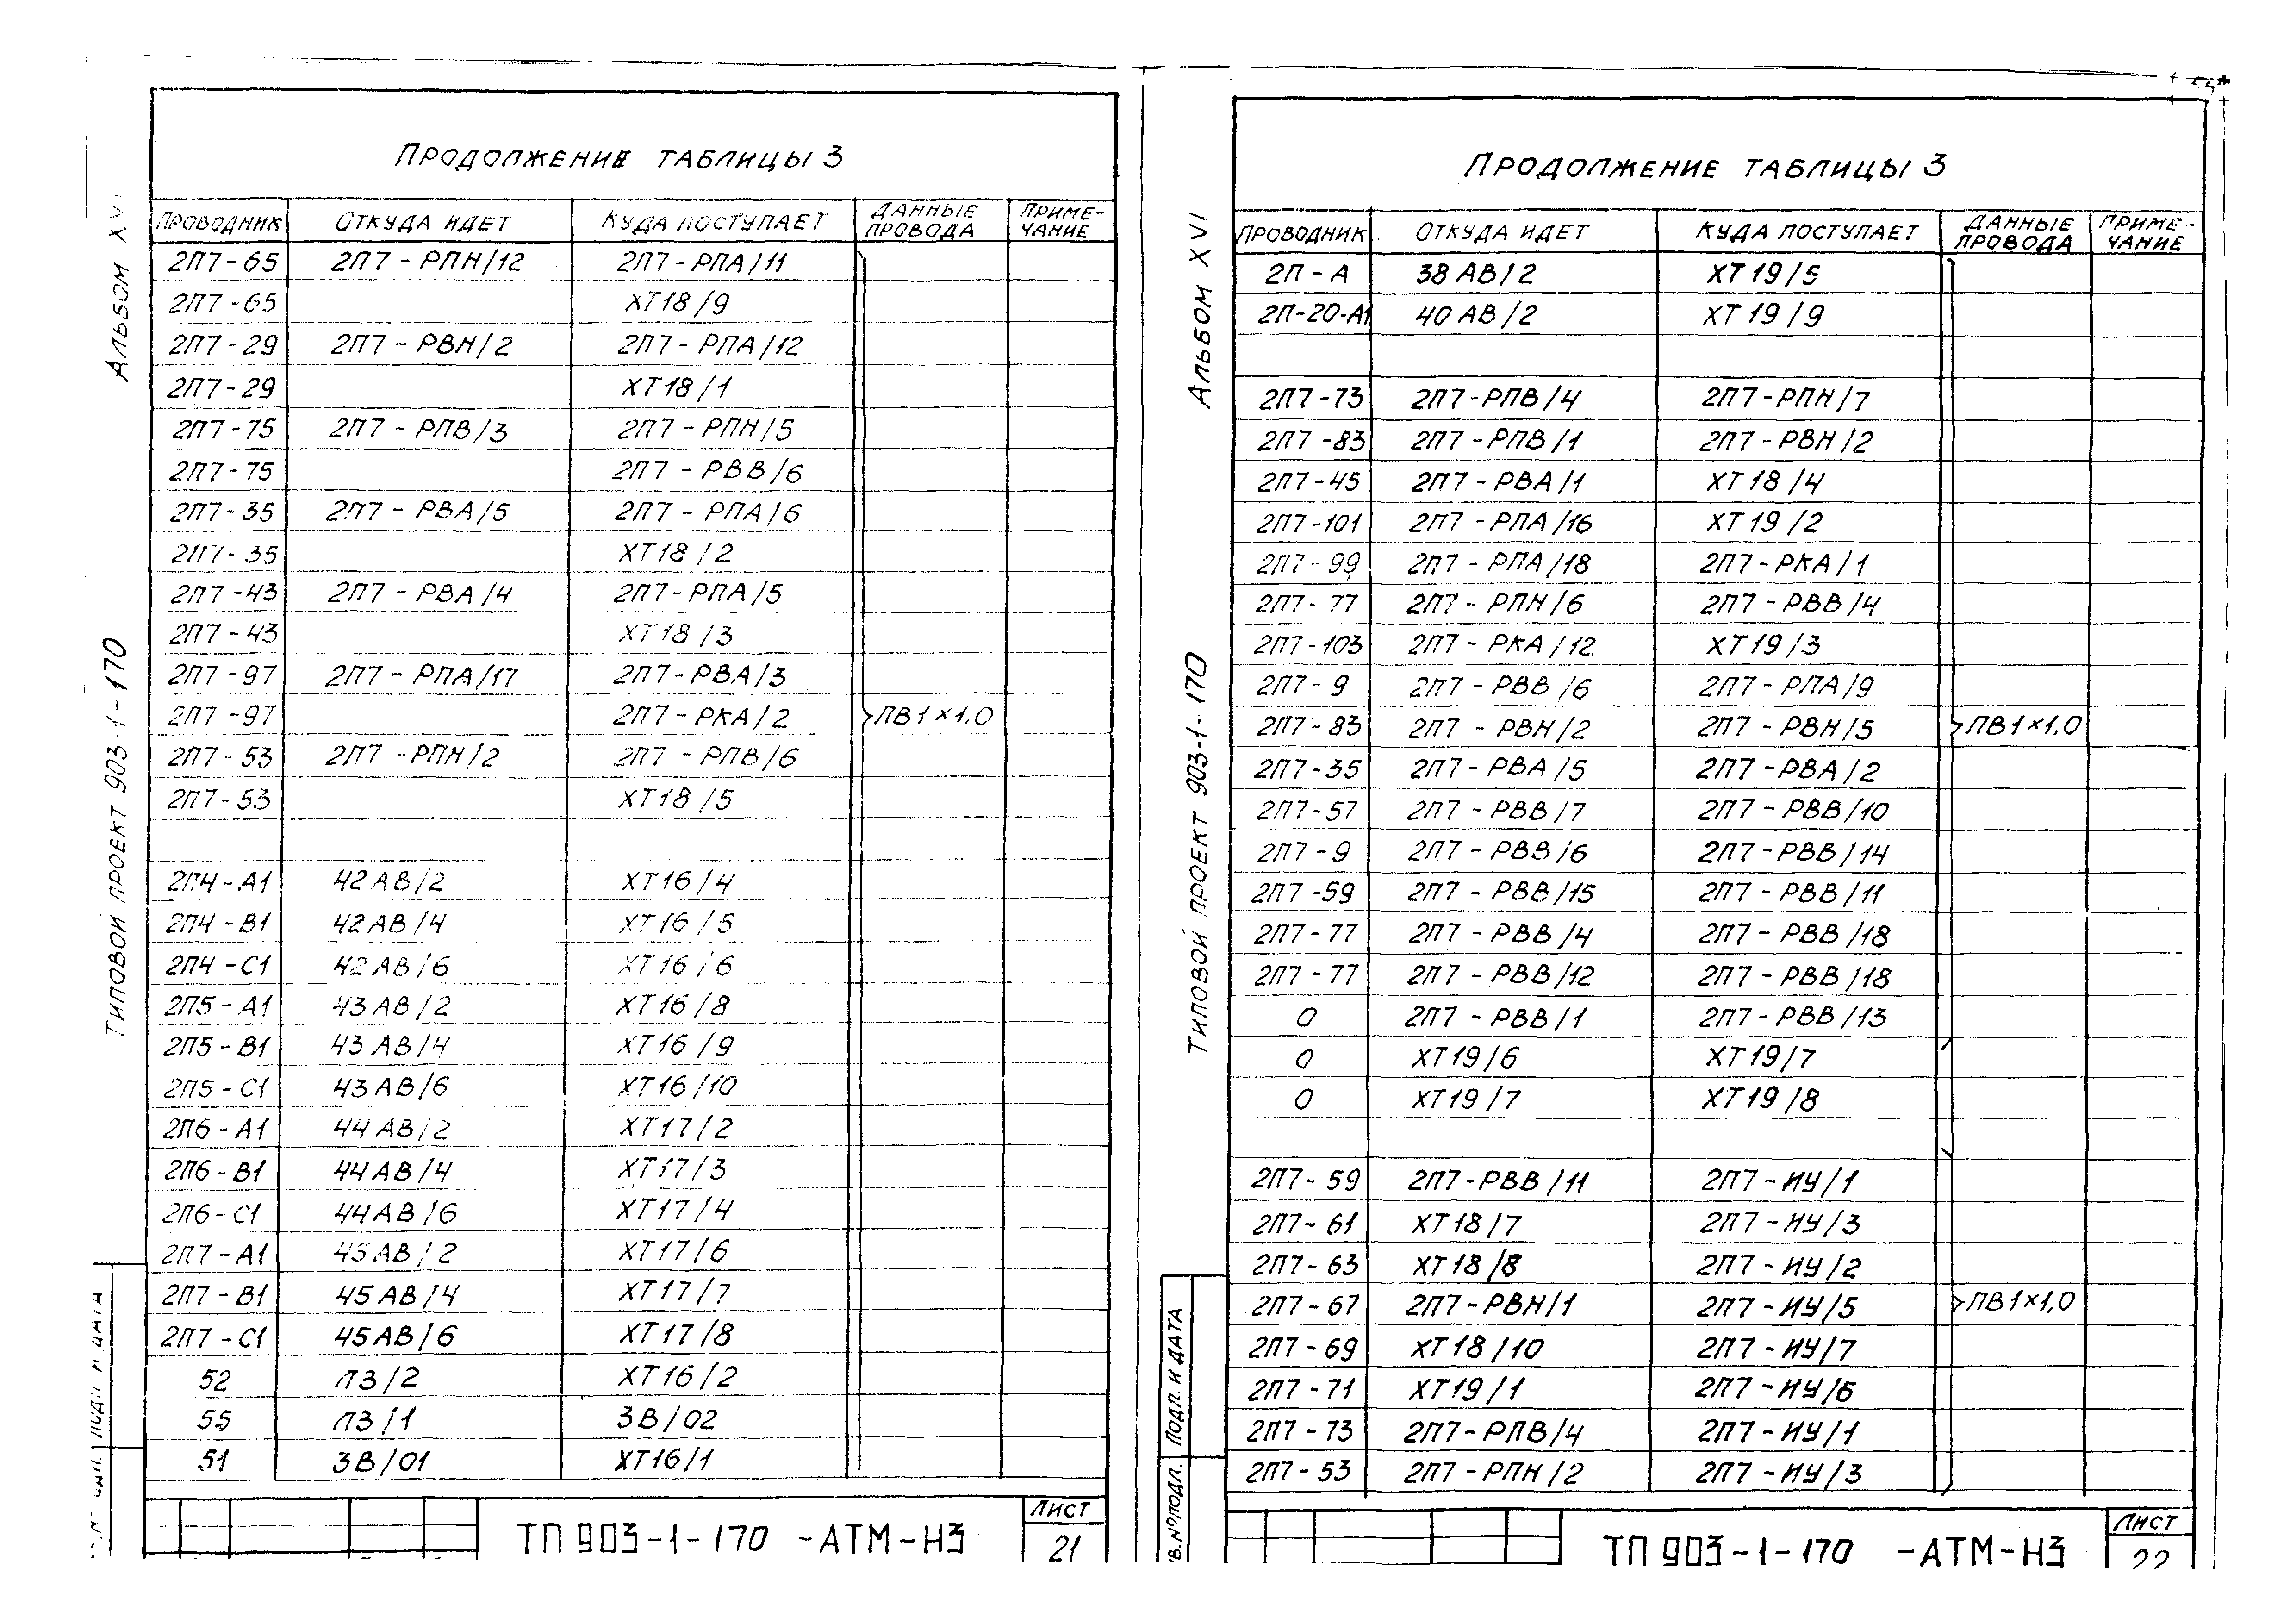 Альбом XVI
Типовой проект 903-1-170
Продолжение таблицы 3
Проводник Откуда идет Куда поступает Данные провода Приме-чание
2П7-65 2П7-РПН/12 2П7-РПА/11
2П7-65 ХТ18/9
2П7-29 2П7-РВН/2 2П7-РПА/12
2П7-29 ХТ18/1
2П7-75 2П7-РПВ/3 2П7-РПН/5
2П7-75 2П7-РВВ/6
2П7-35 2П7-РВА/5 2П7-РПА/6
2П7-35 ХТ18/2
2П7-43 2П7-РВА/4 2П7-РПА/5
2П7-43 ХТ18/3
2П7-97 2П7-РПА/17 2П7-РВА/3
2П7-97 2П7-РКА/2 ПВ1×1,0
2П7-53 2П7-РПН/2 2П7-РПВ/6
2П7-53 ХТ18/5
2П4-А1 42АВ/2 ХТ16/4
2П4-В1 42АВ/4 ХТ16/5
2П4-С1 42АВ/6 ХТ16/6
2П5-А1 43АВ/2 ХТ16/8
2П5-В1 43АВ/4 ХТ16/9
2П5-С1 43АВ/6 ХТ16/10
2П6-А1 44АВ/2 ХТ17/2
2П6-В1 44АВ/4 ХТ17/3
2П6-С1 44АВ/6 ХТ17/4
2П7-А1 45АВ/2 ХТ17/6
2П7-В1 45АВ/4 ХТ17/7
2П7-С1 45АВ/6 ХТ17/8
52 ЛЗ/2 ХТ16/2
55 ЛЗ/1 ЗВ/02
51 ЗВ/01 ХТ16/1
подл. и дата
ТП 903-1-170 -АТМ-НЗ
Лист
21
Альбом XVI
Типовой проект 903-1-170
Продолжение таблицы 3
Проводник Откуда идет Куда поступает Данные провода Приме-чание
2П-А 38АВ/2 ХТ19/5
2П-20-А1 40АВ/2 ХТ19/9
2П7-73 2П7-РПВ/4 2П7-РПН/7
2П7-83 2П7-РПВ/1 2П7-РВН/2
2П7-45 2П7-РВА/1 ХТ18/4
2П7-101 2П7-РПА/16 ХТ19/2
2П7-99 2П7-РПА/18 2П7-РКА/1
2П7-77 2П7-РПН/6 2П7-РВВ/4
2П7-103 2П7-РКА/12 ХТ19/3
2П7-9 2П7-РВВ/6 2П7-РПА/9
2П7-83 2П7-РВН/2 2П7-РВН/5 ПВ1×1,0
2П7-35 2П7-РВА/5 2П7-РВА/2
2П7-57 2П7-РВВ/7 2П7-РВВ/10
2П7-9 2П7-РВВ/6 2П7-РВВ/14
2П7-59 2П7-РВВ/15 2П7-РВВ/11
2П7-77 2П7-РВВ/4 2П7-РВВ/18
2П7-77 2П7-РВВ/12 2П7-РВВ/18
0 2П7-РВВ/1 2П7-РВВ/13
0 ХТ19/6 ХТ19/7
0 ХТ19/7 ХТ19/8
2П7-59 2П7-РВВ/11 2П7-ИУ/1
2П7-61 ХТ18/7 2П7-ИУ/3
2П7-63 ХТ18/8 2П7-ИУ/2
2П7-67 2П7-РВН/1 2П7-ИУ/5 ПВ1×1,0
2П7-69 ХТ18/10 2П7-ИУ/7
2П7-71 ХТ19/1 2П7-ИУ/6
2П7-73 2П7-РПВ/4 2П7-ИУ/1
2П7-53 2П7-РПН/2 2П7-ИУ/3
Подп. и дата
№подл.
ТП 903-1-170 -АТМ-НЗ
Лист
22